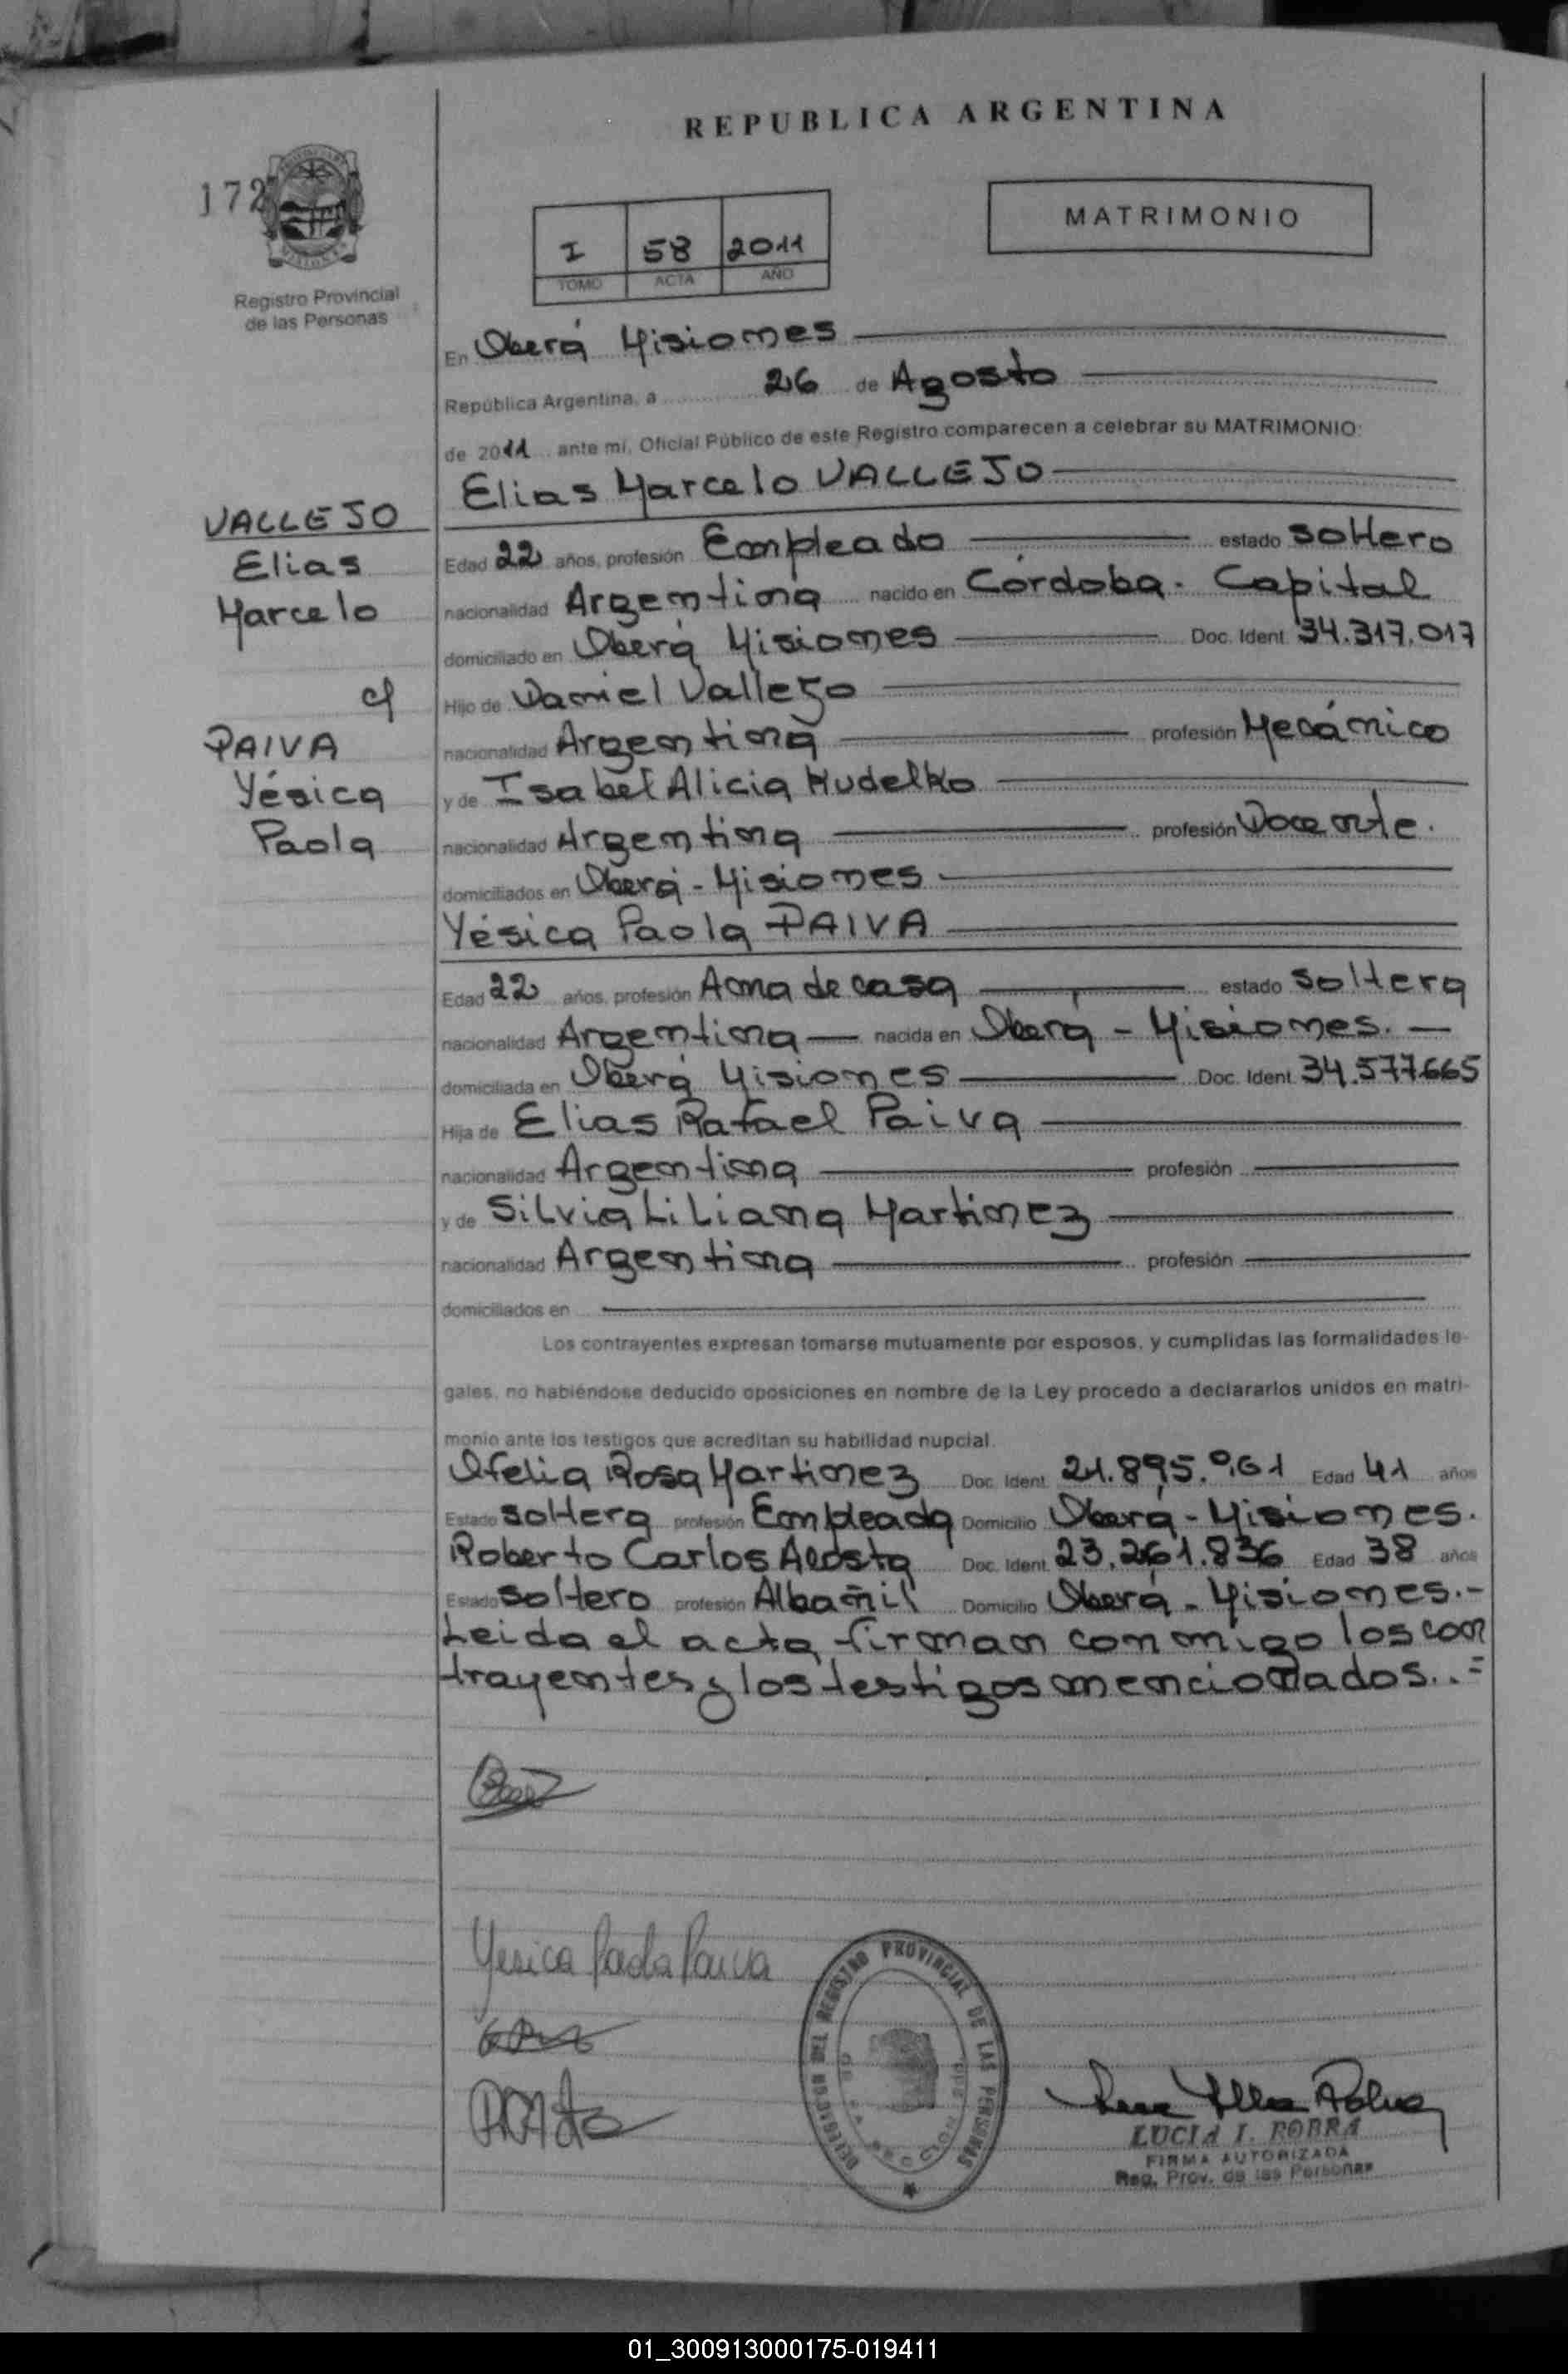 REPUBLICA ARGENTINA
172
MATRIMONIO
I 58 2011
TOMO ACTA AÑO
Registro Provincial
de las Personas
En Oberá Misiones
República Argentina, a 26 de Agosto
de 2011 ante mí, Oficial Público de este Registro comparecen a celebrar su MATRIMONIO:
Elias Marcelo VALLEJO
VALLEJO
Elias
Marcelo
c/
PAIVA
Yésica
Paola
Edad 22 años, profesión Empleado estado soltero
nacionalidad Argentina nacido en Córdoba. Capital
domiciliado en Oberá Misiones Doc. Ident. 34.317.017
Hijo de Daniel Vallejo
nacionalidad Argentina profesión Mecánico
y de Isabel Alicia Kudelko
nacionalidad Argentina profesión Docente.
domiciliados en Oberá - Misiones
Yésica Paola PAIVA
Edad 22 años, profesión Ama de casa estado soltera
nacionalidad Argentina nacida en Oberá - Misiones.
domiciliada en Oberá Misiones Doc. Ident. 34.577.665
Hija de Elias Rafael Paiva
nacionalidad Argentina profesión
y de Silvia Liliana Martinez
nacionalidad Argentina profesión
domiciliados en
Los contrayentes expresan tomarse mutuamente por esposos, y cumplidas las formalidades le-
gales, no habiéndose deducido oposiciones en nombre de la Ley procedo a declararlos unidos en matri-
monio ante los testigos que acreditan su habilidad nupcial.
Ofelia Rosa Martinez Doc. Ident. 21.895.961 Edad 41 años
Estado soltera profesión Empleada Domicilio Oberá - Misiones.
Roberto Carlos Acosta Doc. Ident. 23.261.836 Edad 38 años
Estado soltero profesión Albañil Domicilio Oberá - Misiones.-
Leida el acta firman conmigo los con
trayentes y los testigos mencionados..=
Yesica Paola Paiva
DELEGACION DEL REGISTRO PROVINCIAL DE LAS PERSONAS
LUCIA I. BOBRA
FIRMA AUTORIZADA
Reg. Prov. de las Personas
01_300913000175-019411